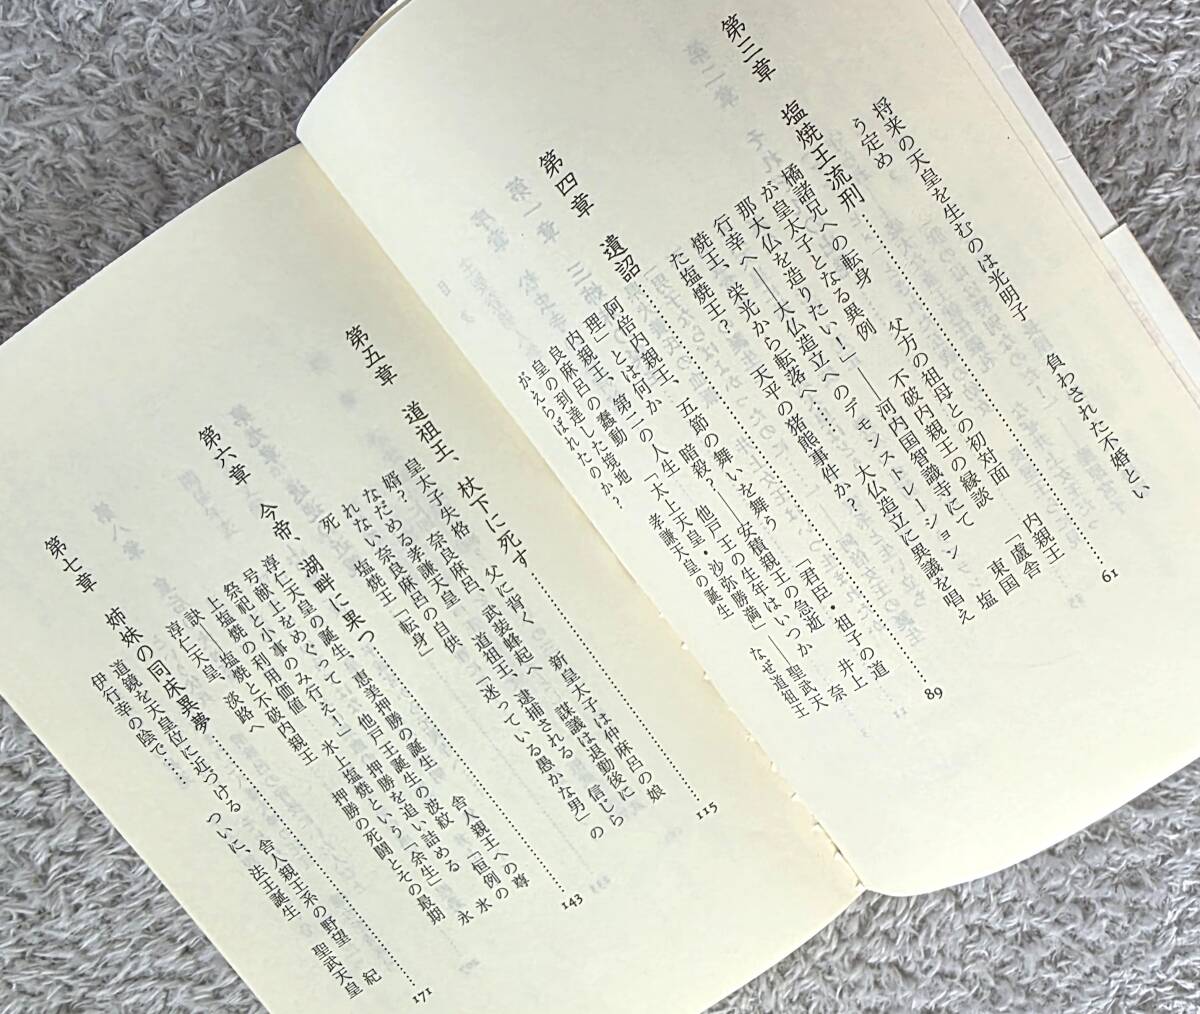 将来の天皇を生むのは光明子　負わされた不婚とい
う定め
第三章　塩焼王流刑 61
橘諸兄への転身　父方の祖母との初対面　内親王
が皇太子となる異例　不破内親王の縁談　「盧舎
那大仏を造りたい！」――河内国智識寺にて　東国
行幸へ――大仏造立へのデモンストレーション　塩
焼王、栄光から転落へ……　大仏造立に異議を唱え
た塩焼王？　天平の猪熊事件か？
第四章　遺詔 89
阿倍内親王、五節の舞いを舞う　「君臣・祖子の道
理」とは何か　暗殺？――安積親王の急逝　井上
内親王、第二の人生　他戸王の生年はいつか　奈
良麻呂の蠢動　「太上天皇・沙弥勝満」――聖武天
皇の到達した境地　孝謙天皇の誕生　なぜ道祖王
がえらばれたのか？
第五章　道祖王、杖下に死す 115
皇太子失格　父に背く　新皇太子は仲麻呂の娘
婿？　奈良麻呂、武装蜂起へ　謀議は退勤後に
なだめる孝謙天皇　道祖王、逮捕される　信じら
れない奈良麻呂の自供　「迷っている愚かな男」の
死　塩焼王「転身」
第六章　今帝、湖畔に果つ 143
淳仁天皇の誕生　恵美押勝の誕生　舎人親王への尊
号献上をめぐって　他戸王誕生の波紋　「恒例の
祭祀と小事のみ行え！」　押勝を追い詰める　氷
上塩焼の利用価値　氷上塩焼という「余生」　氷
上塩焼と不破内親王　押勝の死闘とその最期
訣――淳仁天皇、淡路へ
第七章　姉妹の同床異夢 171
道鏡を天皇位に近つける　舎人親王系の野望　紀
伊行幸の陰で……　ついに、法王誕生　聖武天皇